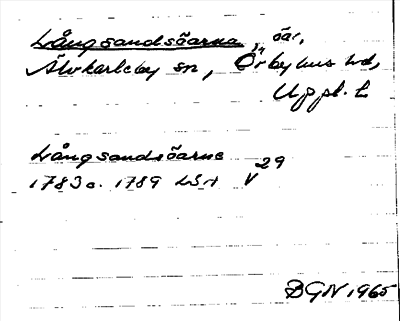 Långsandsöarna, öar,
Älvkarleby sn, Örbyhus hd,
Uppl. l.
Långsandsöarne
1783 o. 1789 LSA V 29
BGN 1965